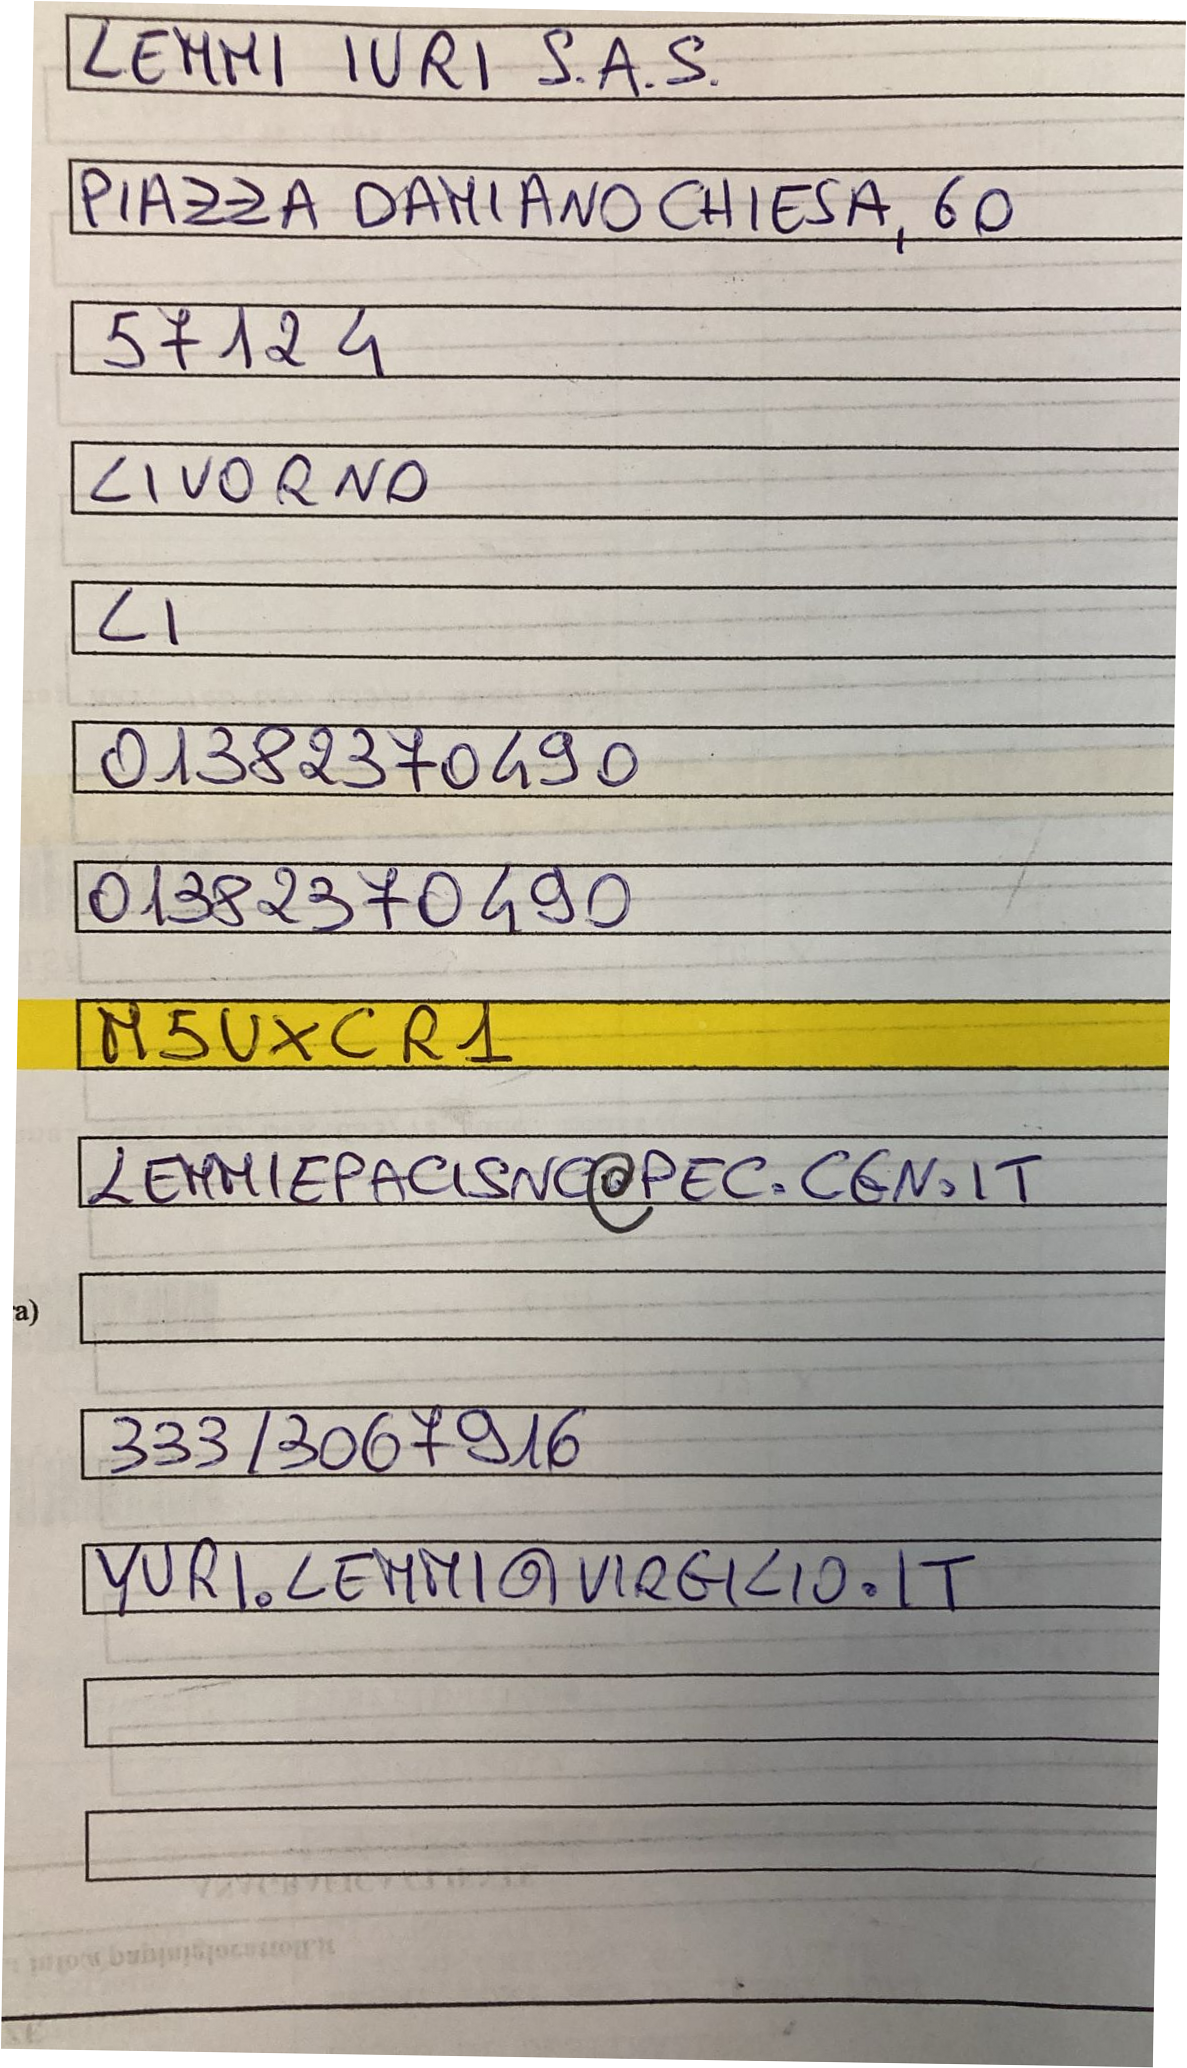 LEMMI IURI S.A.S.
PIAZZA DAMIANO CHIESA, 60
57124
LIVORNO
LI
01382370490
01382370490
M5UXCR1
LEMMIEPACISNC@PEC.CGN.IT
ra)
333/3067916
YURI.LEMMI@VIRGILIO.IT